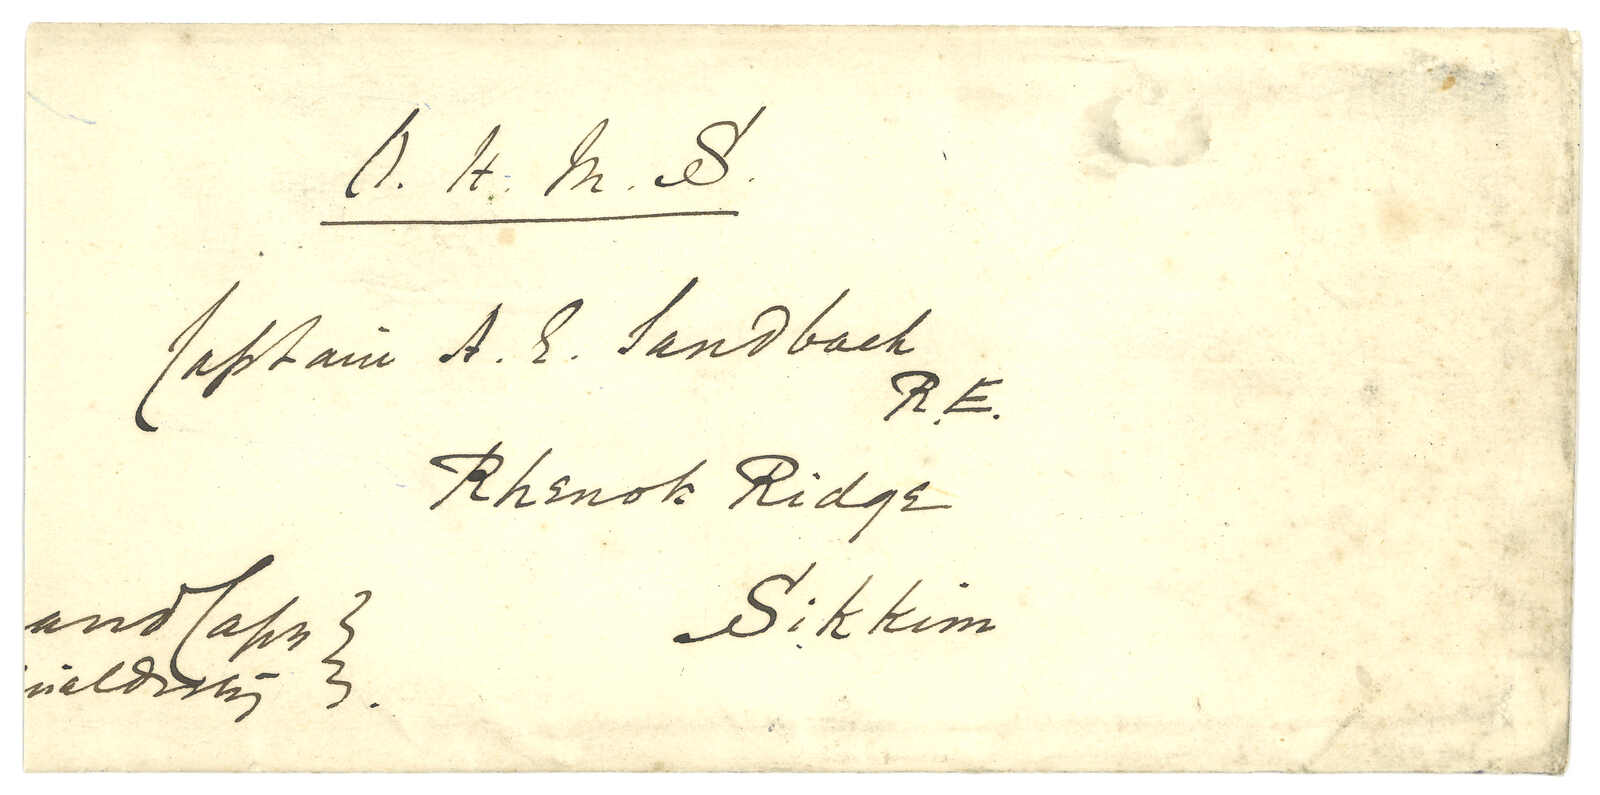 O. H. M. S.
Captain A. E. Sandbach
R.E.
Rhenok Ridge
Sikkim
and Caps